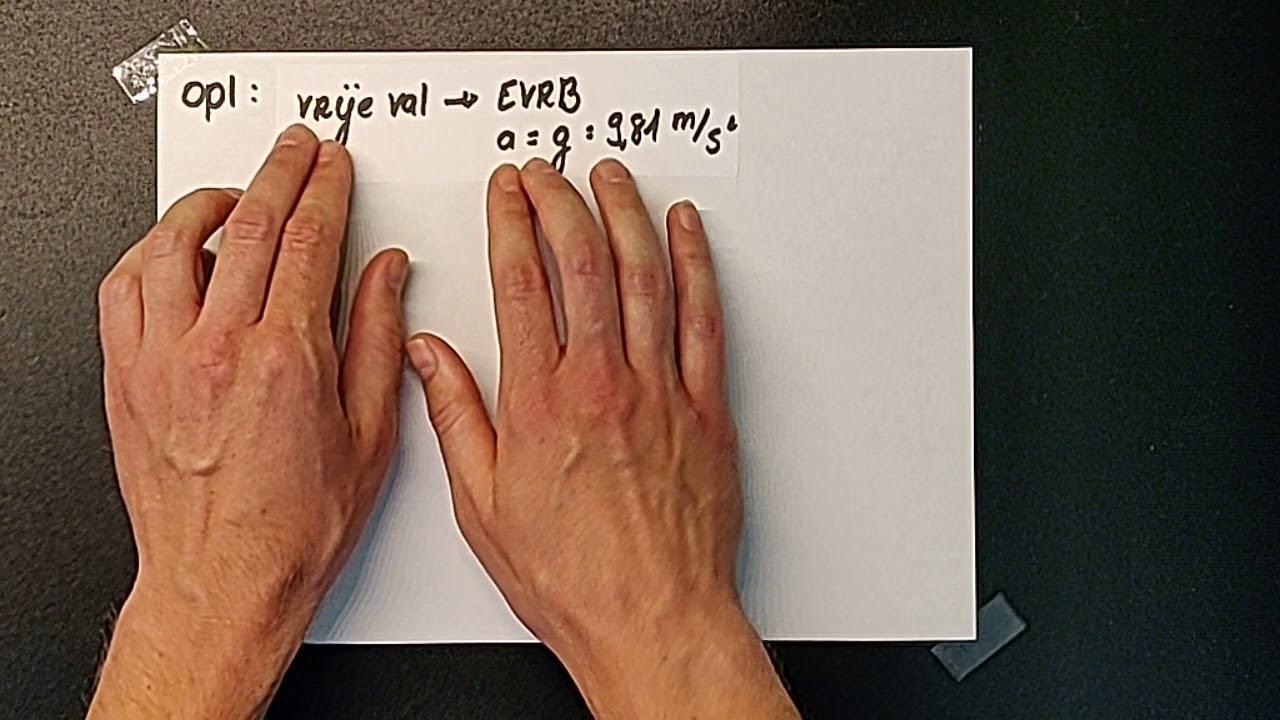 opl: vrije val → EVRB
a = g = 9,81 m/s²